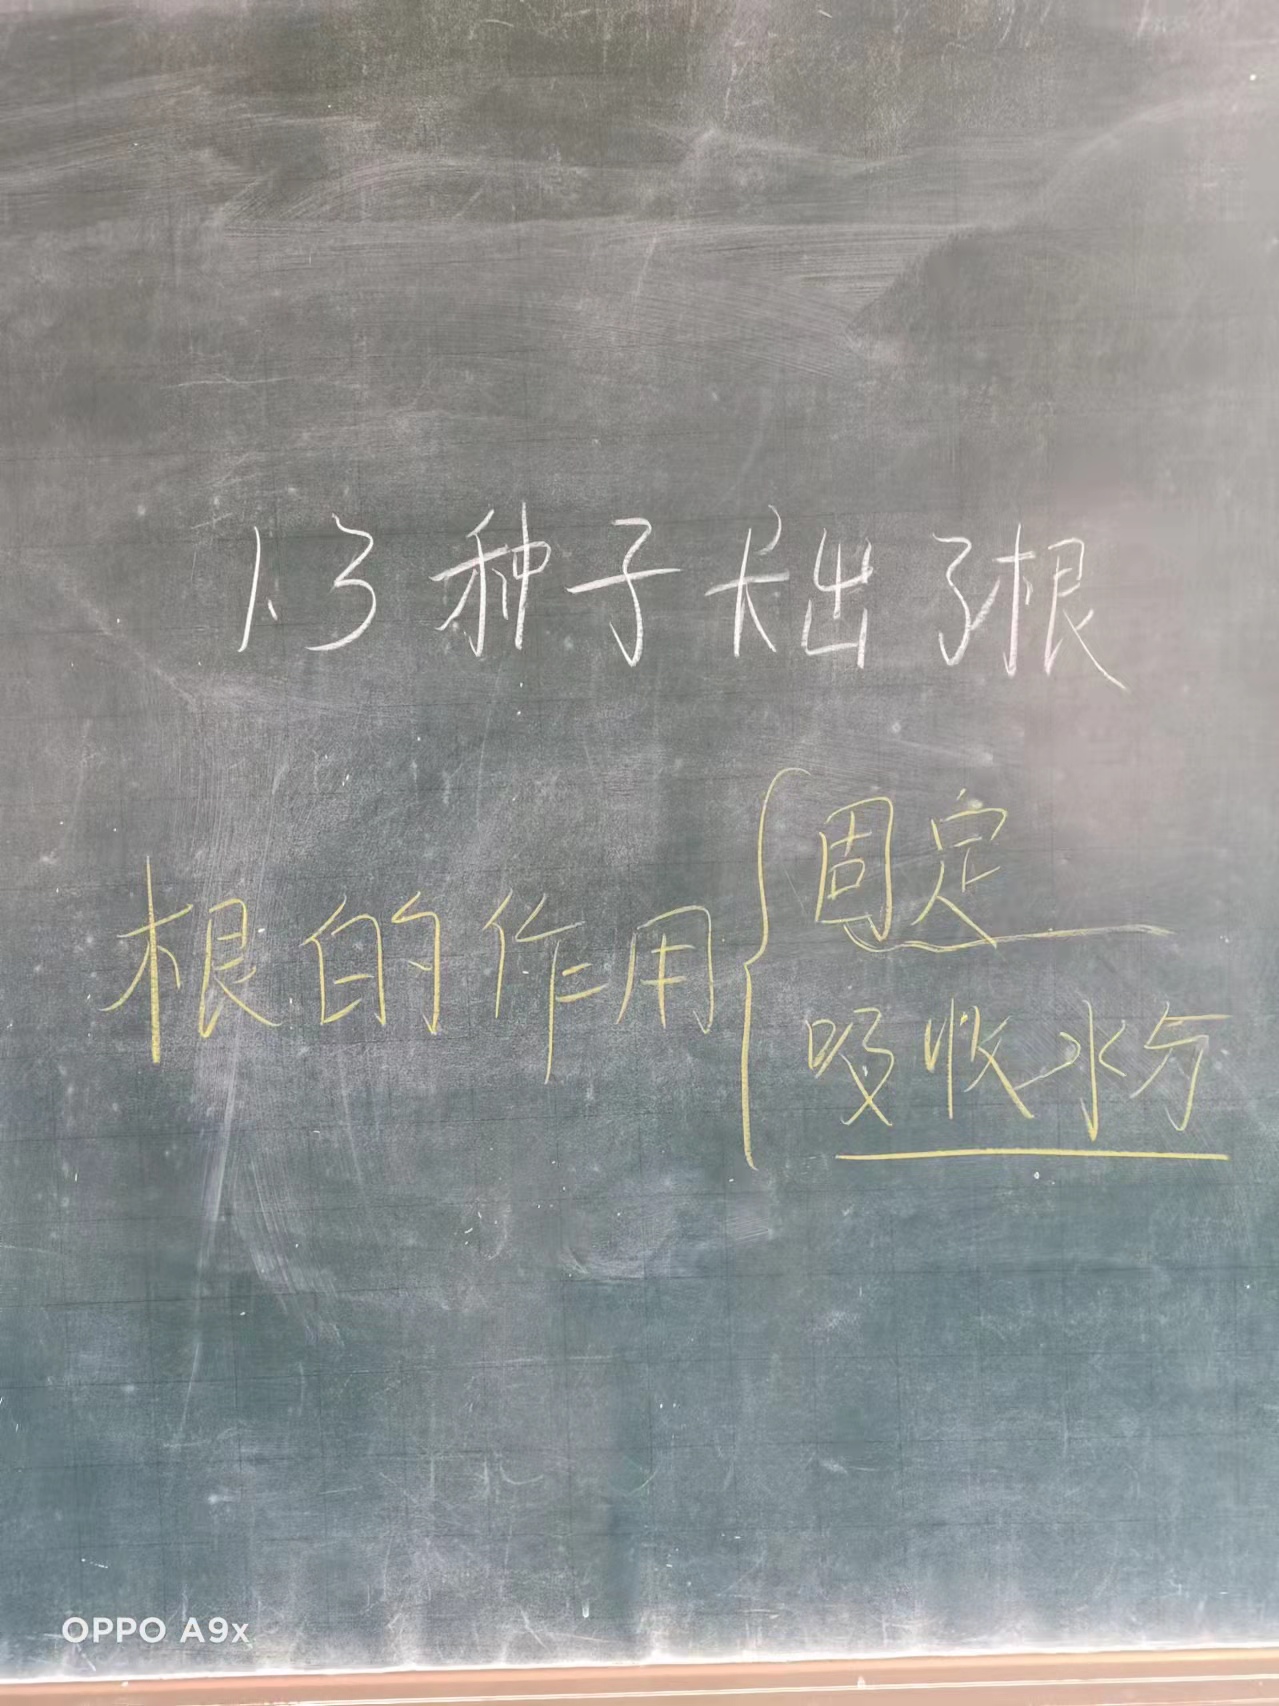 1.3 种子长出了根
根的作用
固定
吸收水分
OPPO A9x